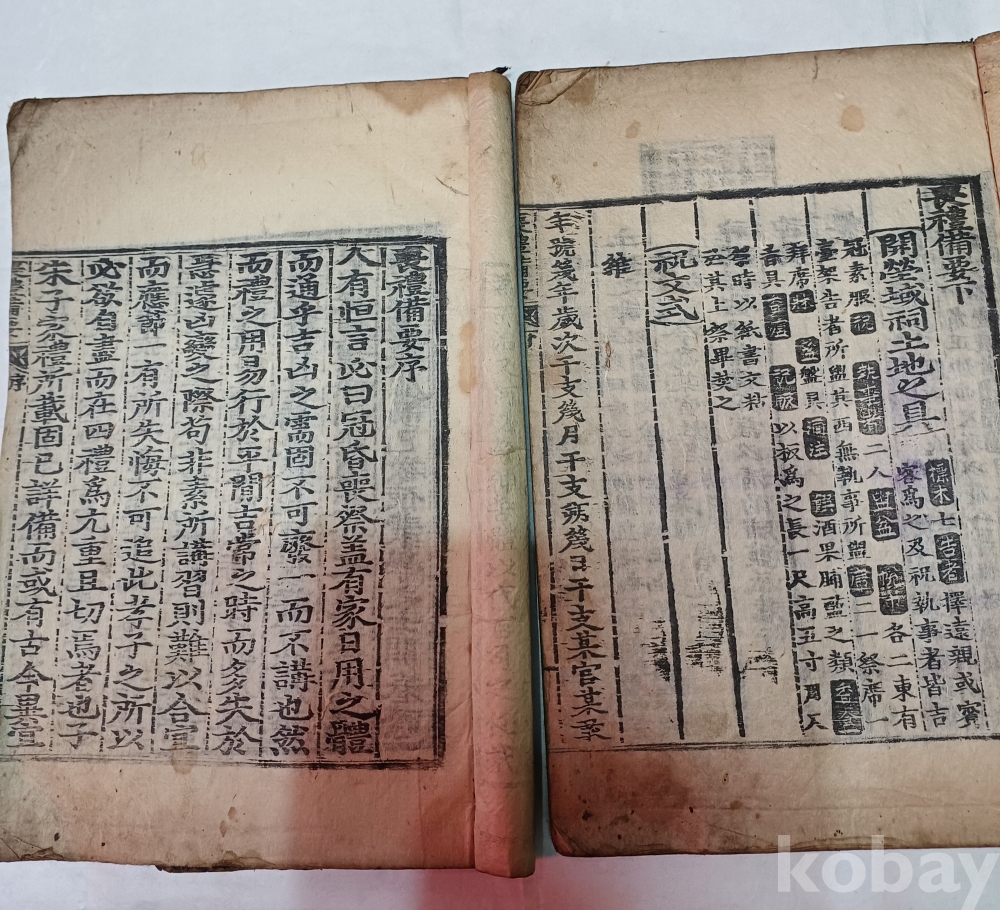 喪禮備要序
人有恒言必曰冠昏喪祭盖有家日用之體
而通乎吉凶之需固不可廢一而不講也然
而禮之用易行於平閒吉常之時而多失於
急遽凶變之際苟非素所講習則難以合宜
而應節一有所失悔不可追此孝子之所以
必欲自盡而在四禮爲尤重且切焉者也子
朱子家禮所載固已詳備而或有古今異宜
喪禮備要下
開塋域祠土地之具
標木七告者擇遠親或賓
客爲之及祝執事者皆吉
冠素服祝執事者二人盥盆帨巾各二東有
臺架告者所盥其西無執事所盥席二一祭席一
拜席卓盞盤具酒注酒果脯醢之類
香具香爐祝版以板爲之長一尺高五寸
臨時以紙書文粘
於其上祭畢焚之
祝文式
維
年號幾年歲次干支幾月干支朔幾日干支某官某
kobay